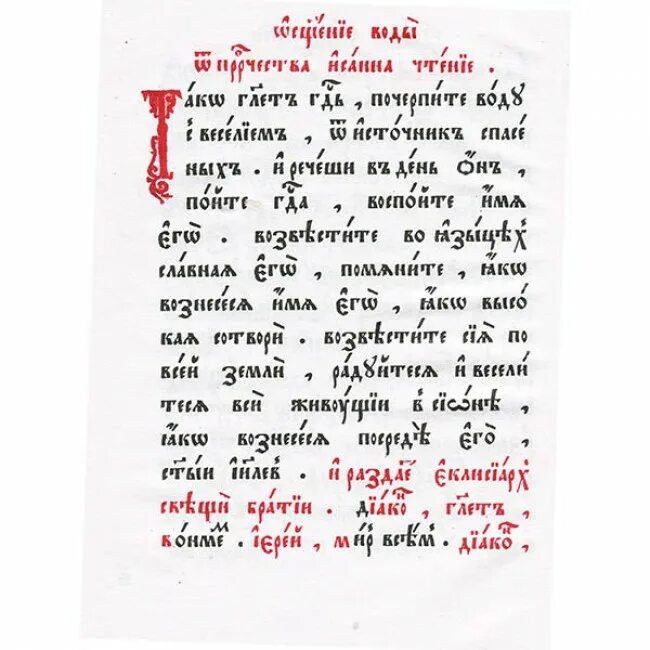 Ѡ҆сщ҃е́нїе воды̀
ѿ прⷪ҇ро́чества и҆са́їина чте́нїе .
Та́кѡ гл҃етъ гдⷭ҇ь , почерпи́те во́дꙋ
с̾весе́лїемъ , ѿ и҆сто́чникъ спасе́
ныхъ . и҆ рече́ши въ де́нь ѻ҆́нъ ,
по́йте гдⷭ҇а , воспо́йте и҆́мѧ
є҆гѡ̀ . возвѣсти́те во ꙗ҆зы́цѣхъ
сла́внаѧ є҆гѡ̀ , помѧни́те , ꙗ҆́кѡ
вознесе́сѧ и҆́мѧ є҆гѡ̀ , ꙗ҆́кѡ высо́
каѧ сотворѝ . возвѣсти́те сїѧ̀ по
все́й землѝ , ра́дꙋйтесѧ и҆ весели́
тесѧ всѝ живꙋ́щїи в̾ сїѡ́нѣ ,
ꙗ҆́кѡ вознесе́сѧ посредѣ̀ є҆го̀ ,
ст҃ы́и і҆и҃лев̾ . и҆ раздае́тъ є҆клисїа́рхъ
свѣщѝ бра́тїи . дїа́конъ , гл҃етъ ,
во́нмемъ . і҆ере́й , ми́ръ всѣ́мъ . дїа́конъ ,